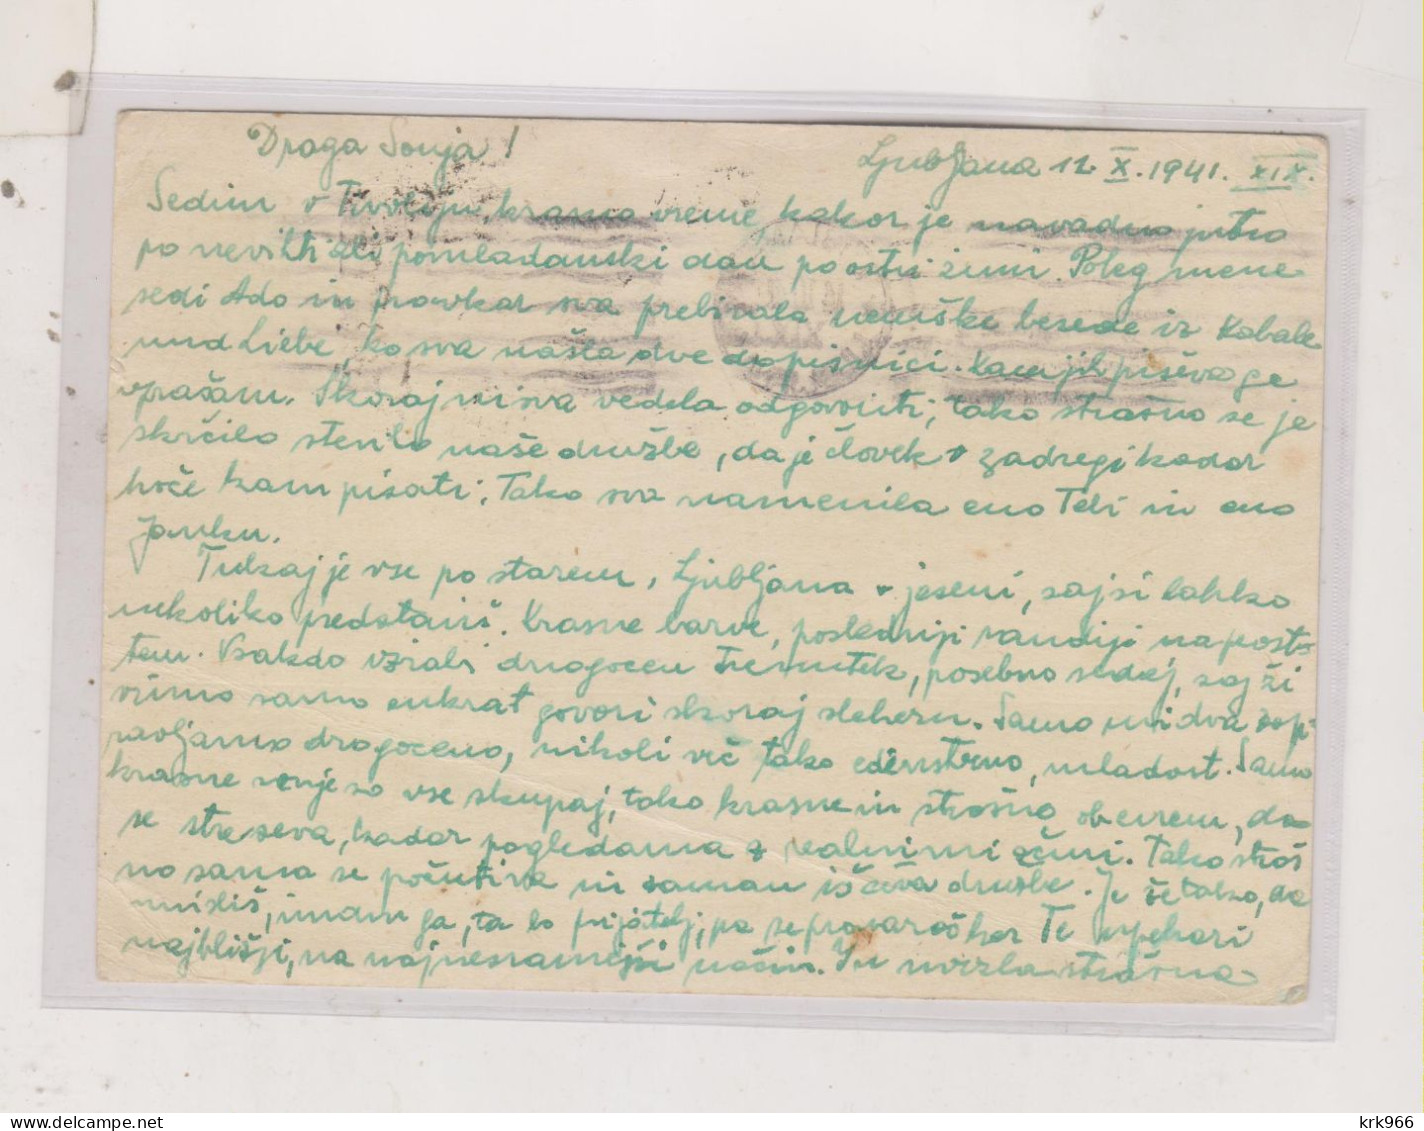 Draga Sonja!
Ljubljana 12 X. 1941. XIX.
Sedim v Tivoliju, krasno vreme kakor je navadno jutro
po nevihti ali pomladanski dan po ostri zimi. Poleg mene
sedi Ado in pravkar sva prebirala nemiške besede iz Kabale
und Liebe, ko sva našla dve dopisnici. Kam jih piševa ge
vprašam. Skoraj nisva vedela odgovoriti, tako strašno se je
skrčilo število naše družbe, da je človek v zadregi kadar
hoče kam pisati. Tako sva namenila eno Tebi in eno
Janku.
Tukaj je vse po starem, Ljubljana v jeseni, saj si lahko
nekoliko predstaviš. Krasne barve, poslednji
tem. Vsakdo izrabi dragocen trenutek, posebno sedaj, saj ži
vimo samo enkrat govori skoraj sleherni. Samo mi dva zapr
avljamo dragoceno, nikoli več tako edinstveno, mladost. Samo
krasne sanje so vse skupaj, tako krasne in strašno obenem, da
se streseva, kadar pogledama z realnimi očmi. Tako straš
no sama se počutiva in zaman iščeva družbe. Je že tako, da
misliš, imam ga, ta bo prijatelj, pa se prevaraš ker Te opehari
najbližji, na najnesramnejši način. In strašna